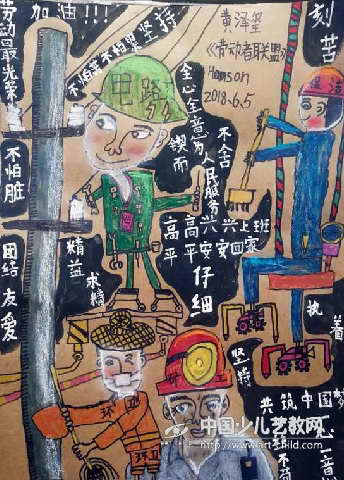 劳动最光荣
加油!!!
不怕累不怕苦
坚持
黄泽玺
《劳动者联盟》
Hanson
2018.6.5
刻苦
电路
建造
全心全意为人民服务
锲而
不舍
不怕脏
高高兴兴上班
平平安安回家
精益
求精
仔细
团结友爱
执着
坚持
环卫
环卫
共筑中国梦
一心一意
中国少儿艺教网